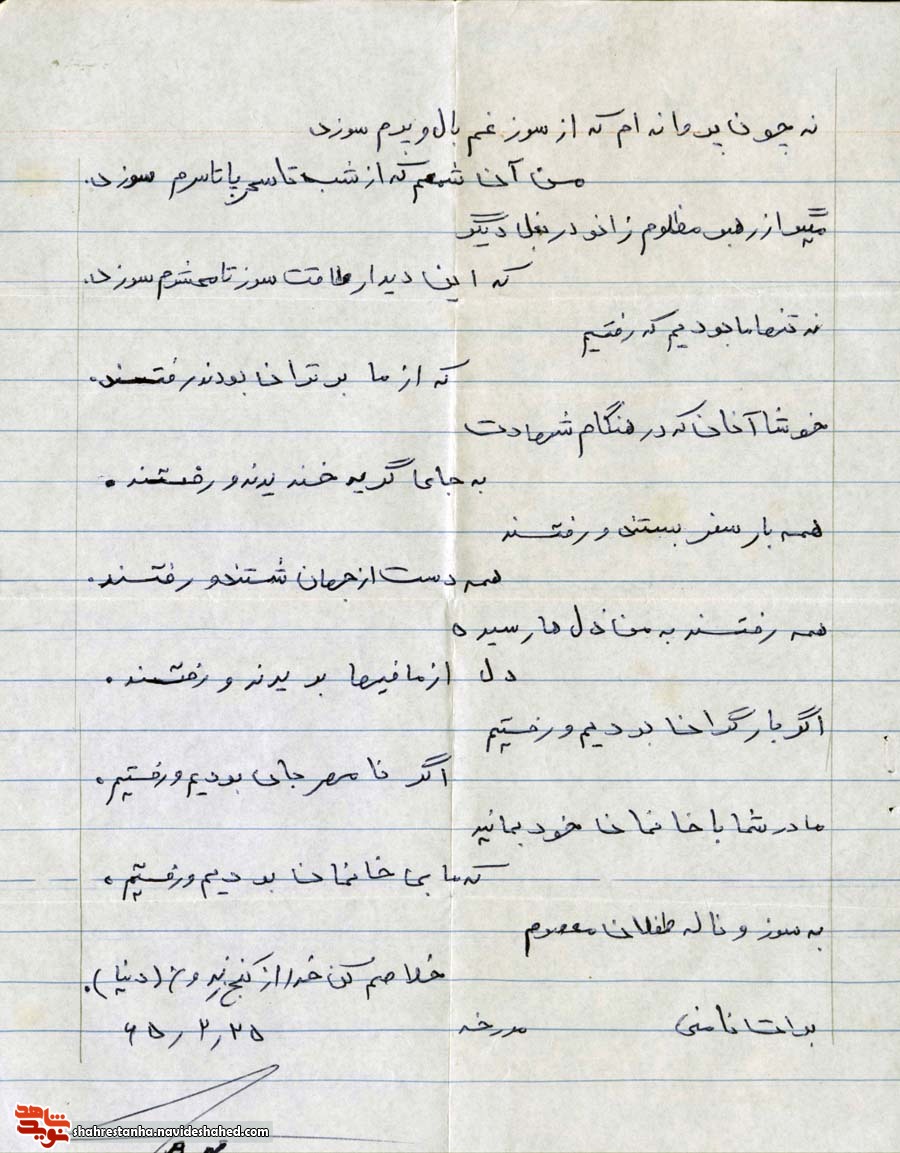 نه چون پروانه ام که از سوز غم بال و پرم سوزی
من آن شمعم که از شب تا سحر پا تا سرم سوزی.
از رهبر مظلوم زانو در بغل دیگر
که این دیدار طاقت سوز تا محشرم سوزی.
نه تنها ما بودیم که رفتیم
که از ما برتران بودند رفتند.
خوشا آنان که در هنگام شهادت
به جای گریه خندیدند و رفتند.
همه بار سفر بستند و رفتند
همه دست از جهان شستند و رفتند.
همه رفتند به منزل ها رسیده
دل از مافیها بریدند و رفتند.
اگر بار گران بودیم و رفتیم
اگر نامهربان بودیم و رفتیم.
مادر شما با خانمان خود بمانید
که ما بی خانمان بودیم و رفتیم.
به سوز و ناله طفلان معصوم
خلاصم کن خدا از کنج زندون (دنیا).
مورخه ۶۵/۲/۲۵
شاهد
نوید
shahrestanha.navideshahed.com